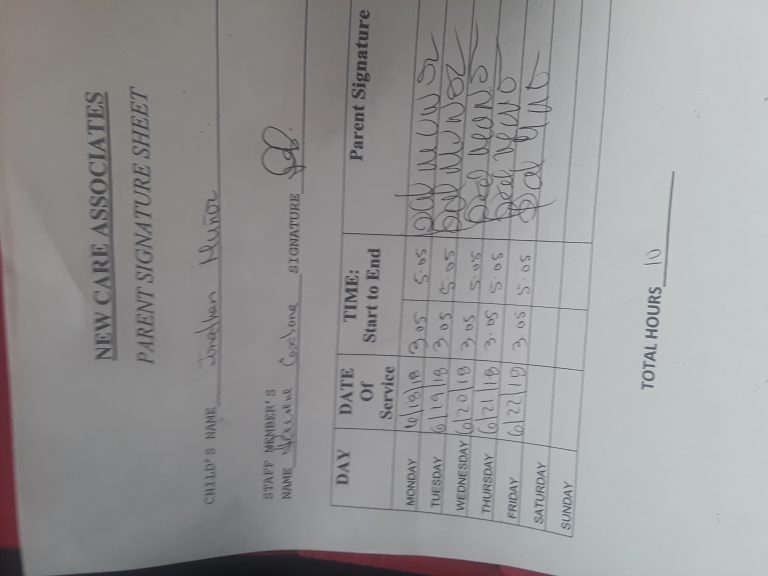 NEW CARE ASSOCIATES
PARENT SIGNATURE SHEET
CHILD'S NAME Jonathan Muñoz
STAFF MEMBER'S
NAME SIGNATURE
DAY DATE Of Service TIME: Start to End Parent Signature
MONDAY 6/18/18 3.05 5.05
TUESDAY 6/19/18 3.05 5.05
WEDNESDAY 6/20/18 3.05 5.05
THURSDAY 6/21/18 3.05 5.05
FRIDAY 6/22/18 3.05 5.05
SATURDAY
SUNDAY
TOTAL HOURS 10